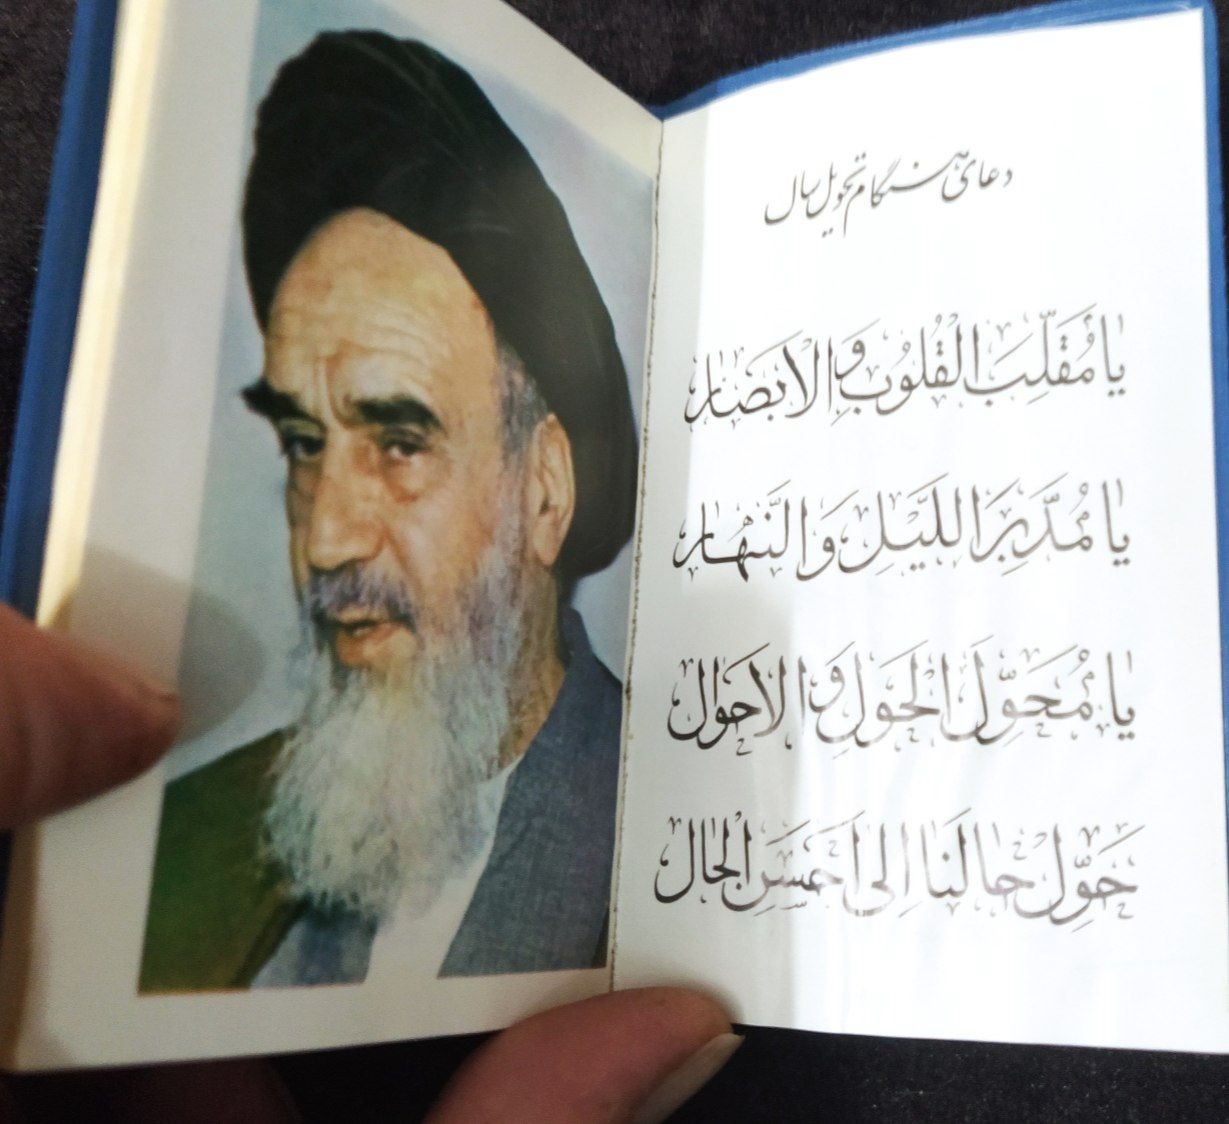 دعای هنگام تحویل سال
یا مُقَلِّبَ الْقُلُوبِ وَ الْاَبْصَارِ
یا مُدَبِّرَ اللَّیْلِ وَ النَّهَارِ
یا مُحَوِّلَ الْحَوْلِ وَ الْاَحْوَالِ
حَوِّلْ حَالَنَا اِلیٰ اَحْسَنِ الْحَالِ